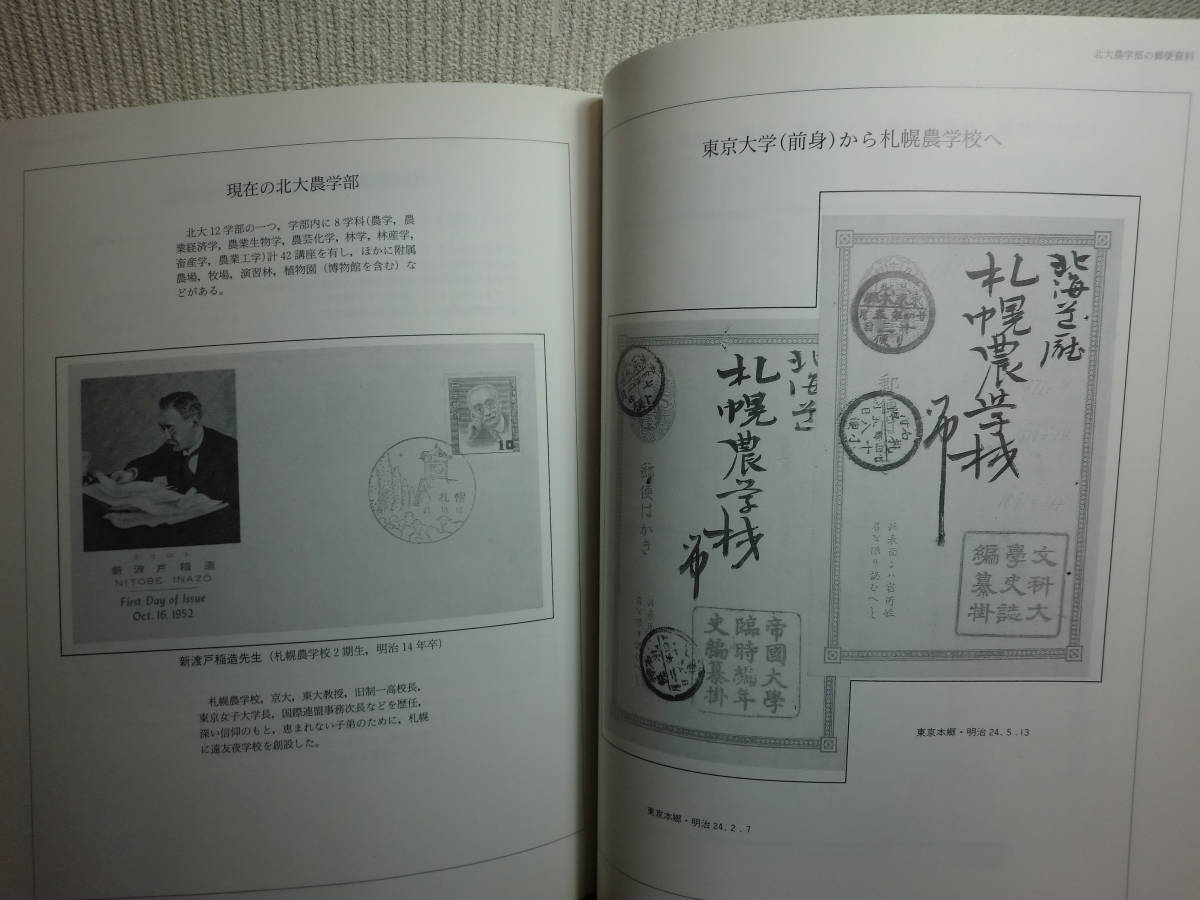 現在の北大農学部
北大12学部の一つ，学部内に8学科(農学，農
業経済学，農業生物学，農芸化学，林学，林産学，
畜産学，農業工学)計42講座を有し，ほかに附属
農場，牧場，演習林，植物園（博物館を含む）な
どがある。
10
札幌
新渡戸稲造
NITOBE INAZŌ
First Day of Issue
Oct. 16, 1952
新渡戸稲造先生（札幌農学校2期生，明治14年卒）
札幌農学校，京大，東大教授，旧制一高校長，
東京女子大学長，国際連盟事務次長などを歴任，
深い信仰のもと，恵まれない子弟のために，札幌
に遠友夜学校を創設した。
北大農学部の郵便資料
東京大学(前身)から札幌農学校へ
北海道
札幌農学校
郵便はかき
帝國大學
臨時編年
史編纂掛
東京本郷・明治24.2.7
北海道廳
札幌農学校
文科大
學史誌
編纂掛
東京本郷・明治24.5.13